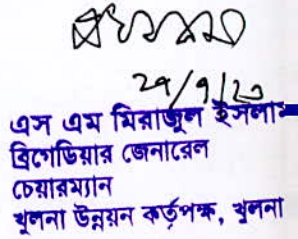 এস এম মিরাজুল ইসলাম
ব্রিগেডিয়ার জেনারেল
চেয়ারম্যান
খুলনা উন্নয়ন কর্তৃপক্ষ, খুলনা